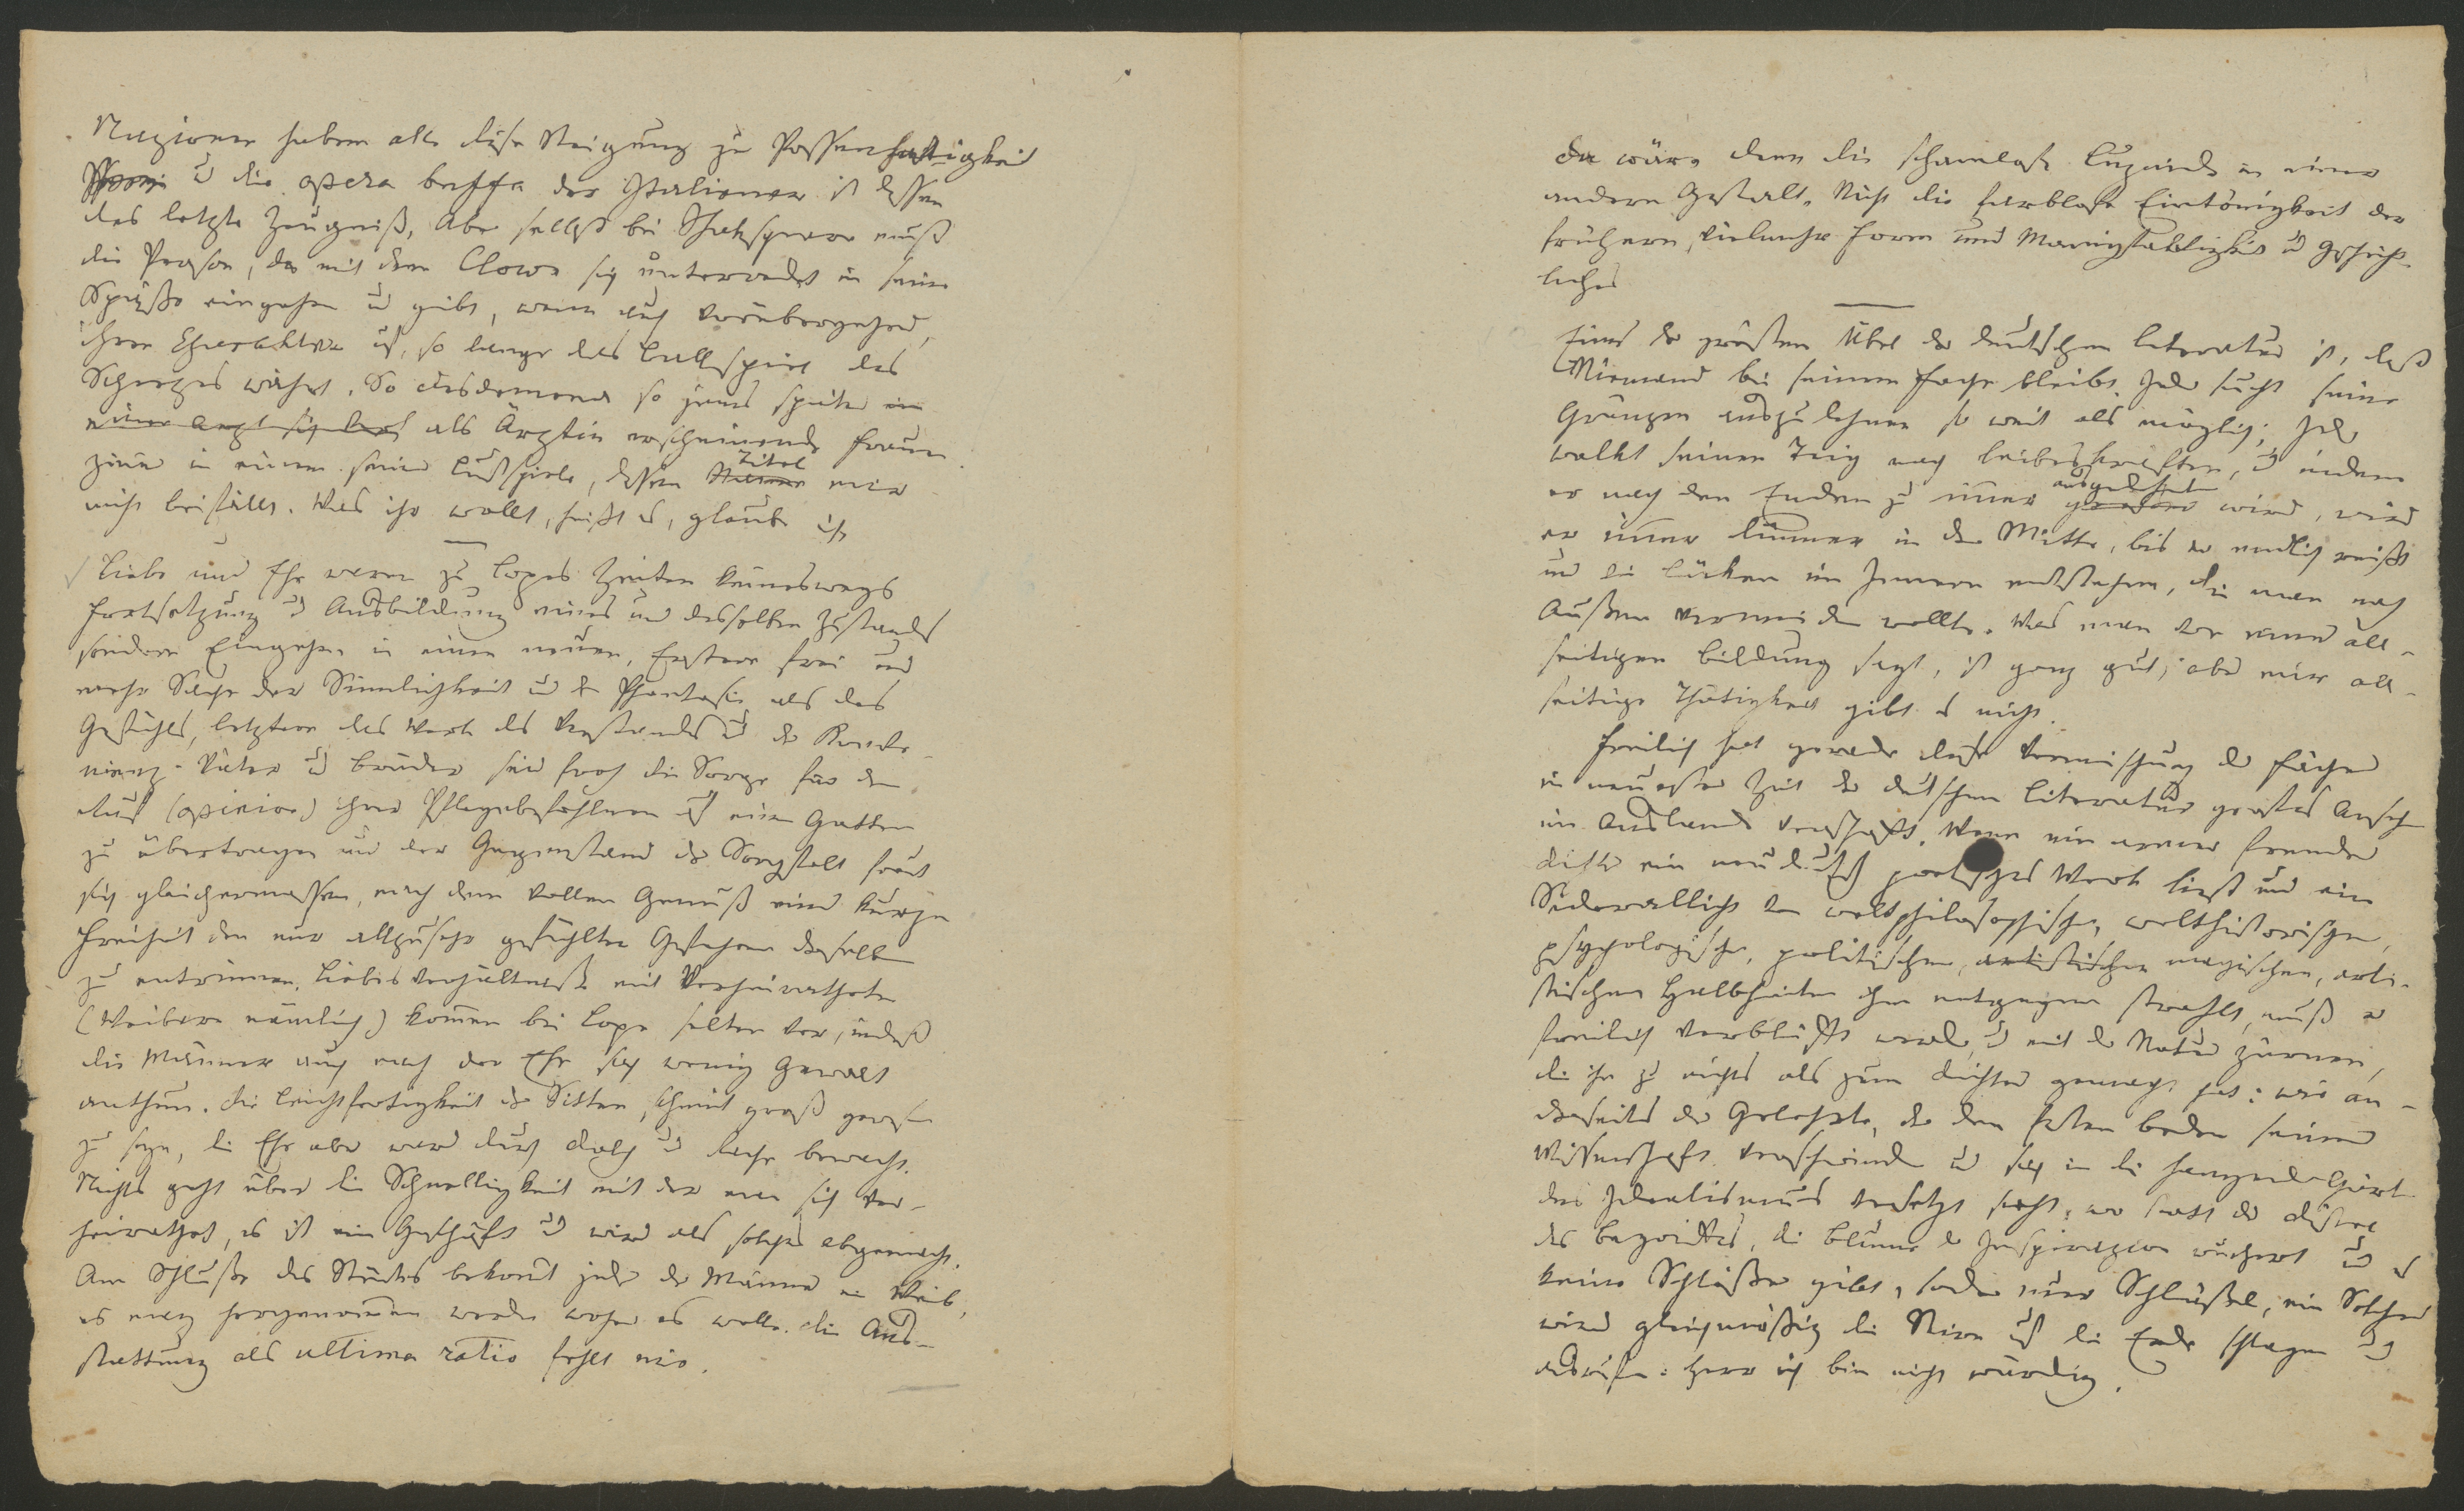 Nazionen haben alle diese Neigung zu Possenhaftigkeit
u die opera buffa der Italiener ist dessen
das letzte Zeugniß, Aber selbst bei Shakspeare muß
die Person, die mit dem Clown sich unterredet in seine
Späße eingehen u gibt, wenn auch vorübergehend,
ihren Charakter auf, so lange das Ballspiel des
Scherzes währt. So Desdemona so jenes später in
einer Arzt sich als Ärztin erscheinende Frauen
zimmer in einem seiner Lustspiele, dessen Namen Titel mir
nicht beifällt. Was ihr wollt, heißt es, glaube ich
Liebe und Ehe waren zu Lopes Zeiten keineswegs
Fortsetzung u Ausbildung eines und desselben Zustandes
sondern Eingehen in einen neuen, Erstere frei und
mehr Sache der Sinnlichkeit u der Phantasie als des
Gefühles, letztere das Werk des Verstandes u der Konve-
nienz. Väter u Brüder sind froh die Sorge für den
Ruf (opinion) ihrer Pflegebefohlenen auf einen Gatten
zu übertragen und der Gegenstand der Sorgfalt freut
sich gleichermassen, nach dem vollen Genuß einer kurzen
Freiheit den nur allzusehr gefühlten Gefahren derselben
zu entrinnen. Liebesverhältnisse mit Verheiratheten
(Weibern nämlich) kommen bei Lope selten vor, indeß
die Männer auch nach der Ehe sich wenig Gewalt
anthun. Die Leichtfertigkeit der Sitten scheint groß gewesen
zu seyn, die Ehe aber ward durch Dolch u Rache bewacht.
Nichts geht über die Schnelligkeit mit der man sich ver-
heirathet, es ist ein Geschäft u wird als solches abgemacht.
Am Schluße des Stückes bekommt jeder der Männer ein Weib,
es mag hergenommen werden woher es wolle. Die Aus-
stattung als ultima ratio fehlt nie.
da wäre denn die schamlose Luzinde in einer
andern Gestalt. Nicht die farblose Eintönigkeit der
frühern, vielmehr Form und Mannigfaltigkeit u Geschicht-
liches
Eines der größten Übel der deutschen Literatur ist, daß
Niemand bei seinem Fache bleibt. Jeder sucht seine
Gränzen auszudehnen so weit als möglich; Jeder
walkt seinen Teig nach Leibeskräften, u indem
er nach den Enden zu immer ausgedehnter wird, wird
er immer dünner in der Mitte, bis er endlich reißt
und die Lücken im Innern entstehen, die man nach
Außen vermeiden wollte. Was man von einer all-
seitigen Bildung sagt, ist ganz gut; aber eine all-
seitige Thätigkeit gibt es nicht.
Freilich hat gerade diese Vermischung der Fächer
in neuester Zeit der deutschen Literatur großes Ansehn
im Auslande verschafft. Wenn ein armer fremder
Dichter ein neudeutsch poetisches Werk liest und ein
Siderallicht von weltphilosophischen, welthistorischen,
psychologischen, politischen, artistischen magischen, arti-
stischen Halbheiten ihm entgegen strahlt, muß er
freilich verblüfft werden, u mit der Natur zürnen,
die ihn zu nichts als zum Dichter gemacht hat: wie an-
derseits der Gelehrte, der den festen Boden seiner
Wissenschaft verschwinden u sich in die hangenden Gärten
des Idealismus versetzt sieht, wo statt der Distel
des Begriffes, die Blume der Inspirazion wuchert u es
keine Schlüße gibt, sondern nur Schlüßel, ein Solcher
wird gleichmäßig die Stirn auf die Erde schlagen u
ausrufen: Herr ich bin nicht würdig.